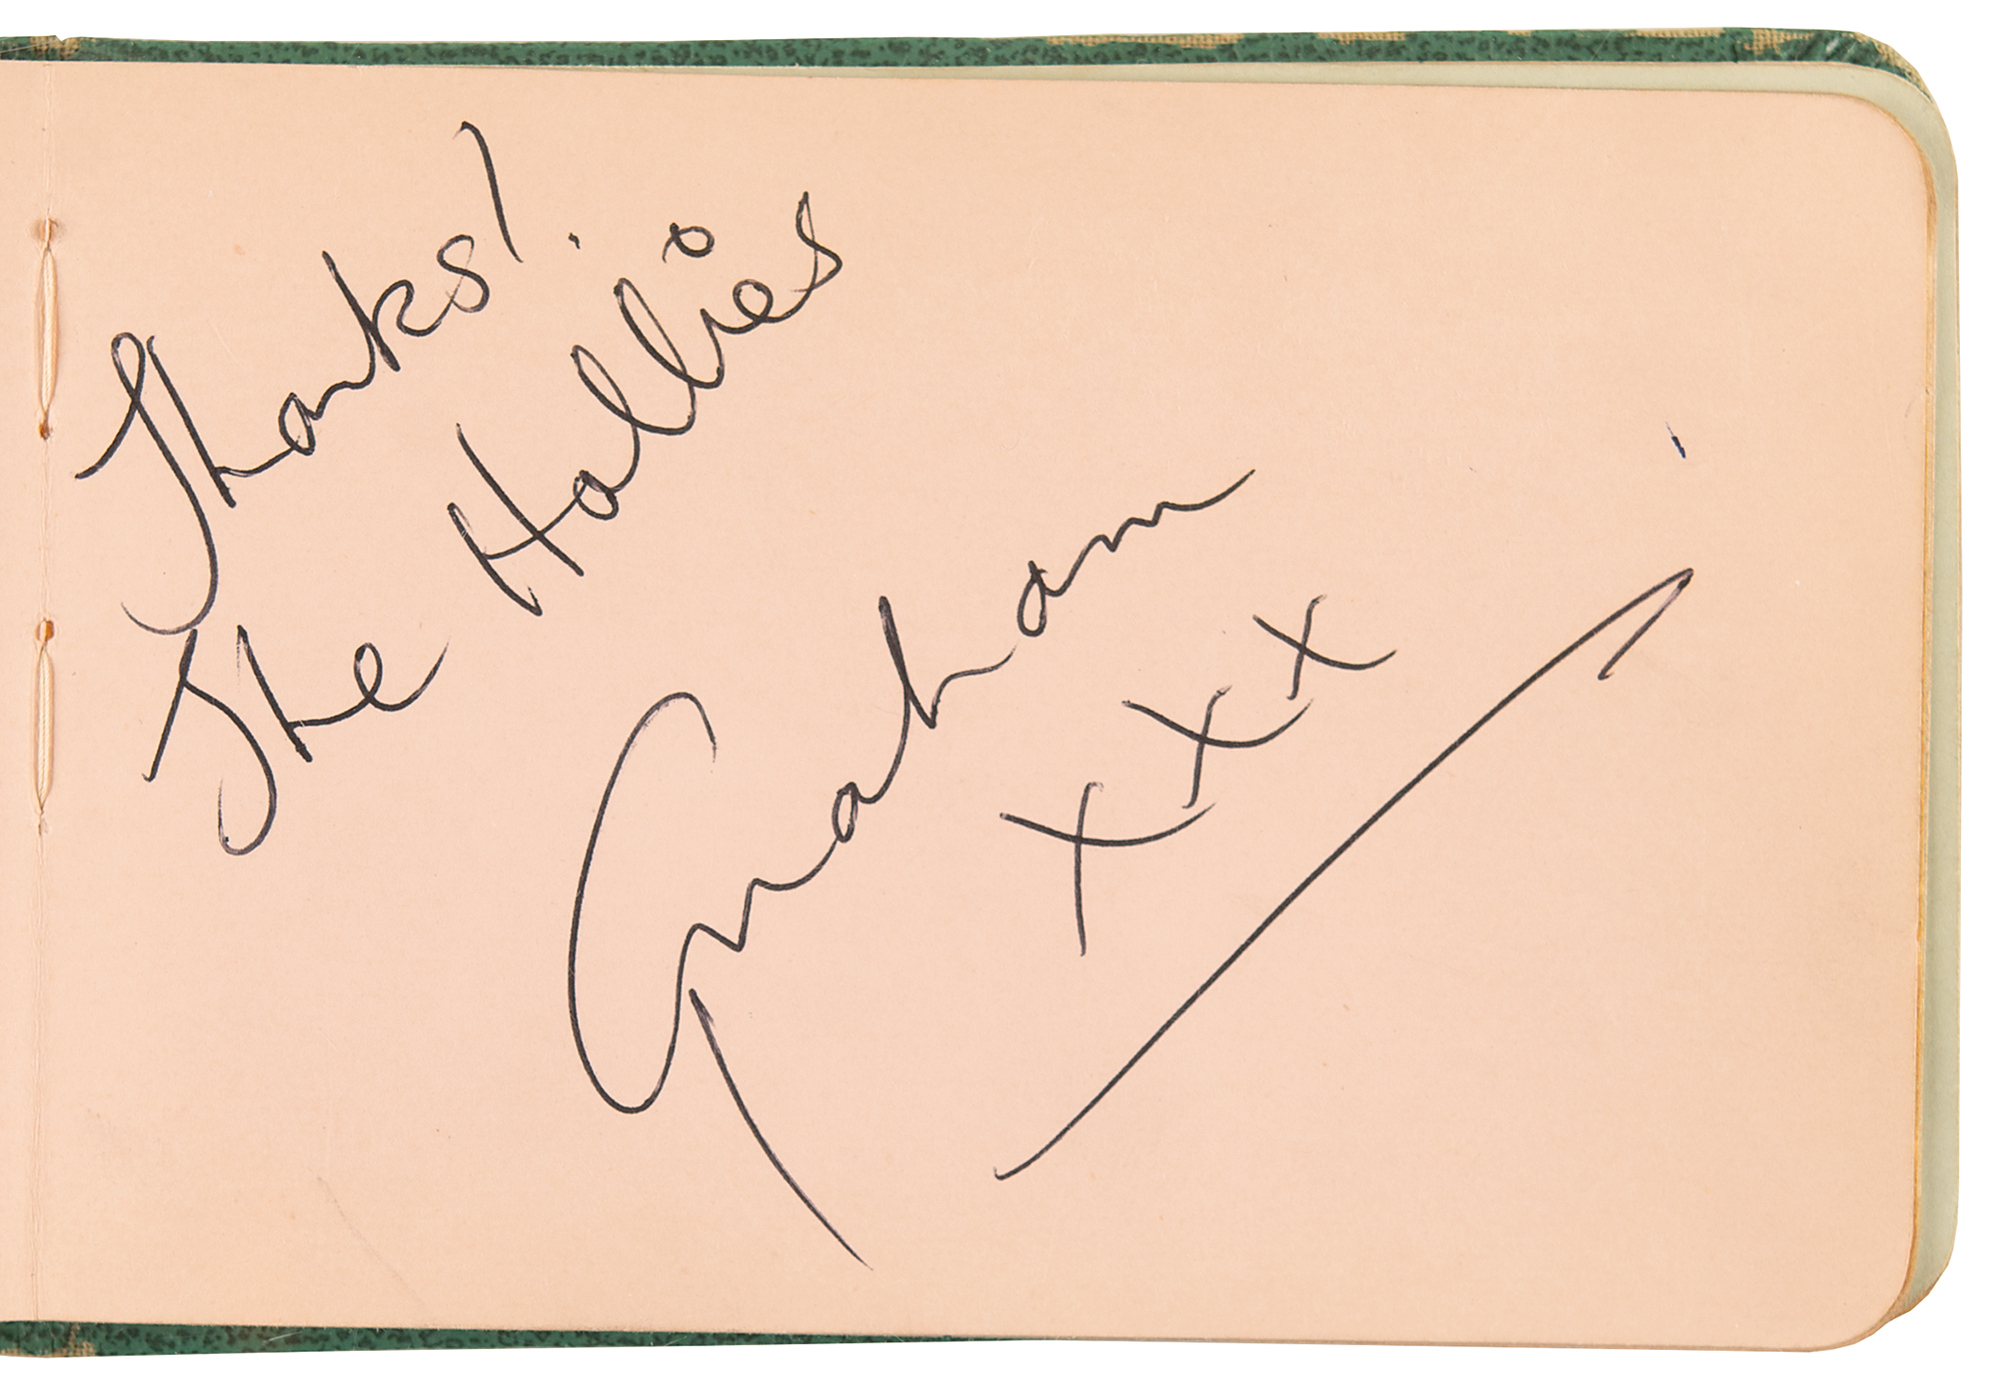 Thanks!
The Hollies
Graham
xxx